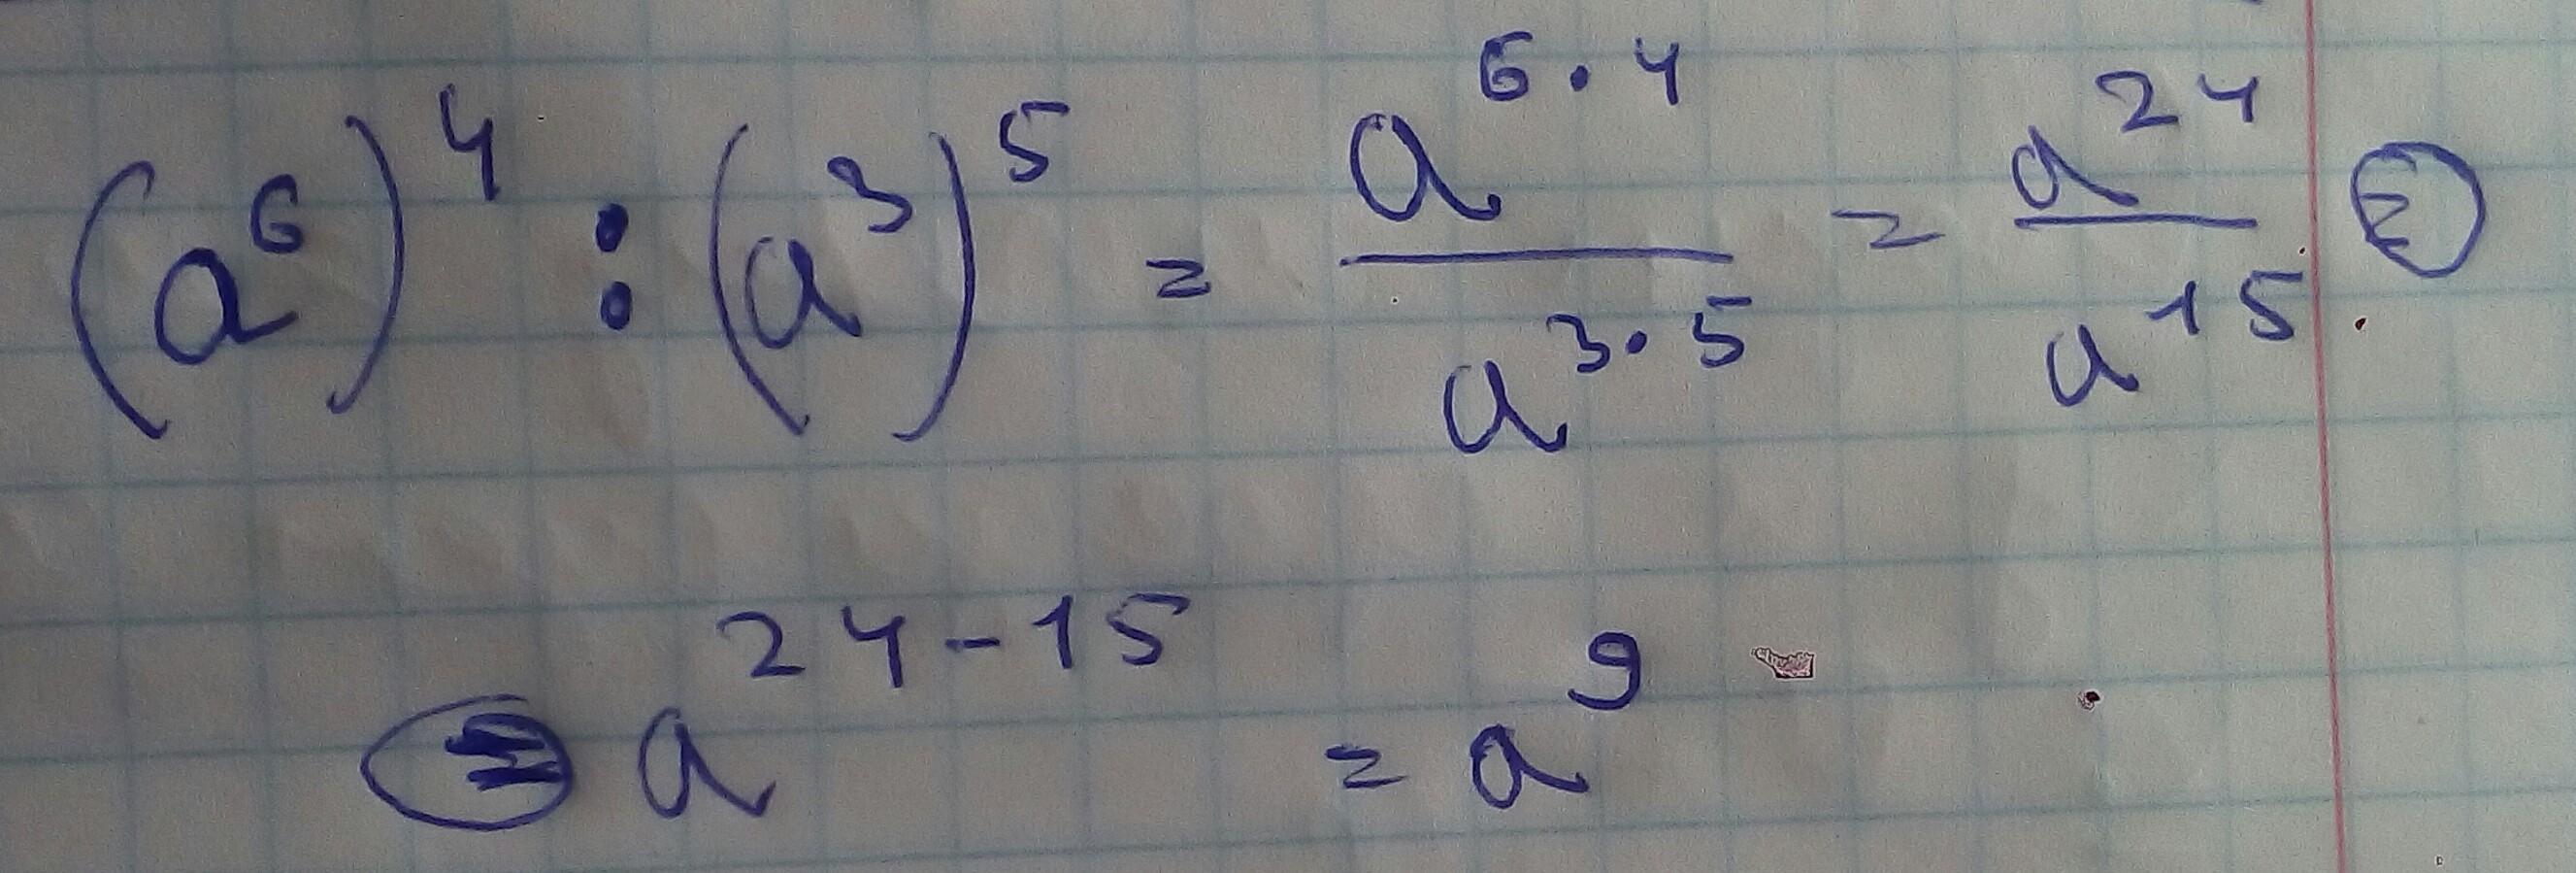 (a⁶)⁴ : (a³)⁵ = a^{6·4} / a^{3·5} = a^{24} / a^{15} =
= a^{24-15} = a⁹